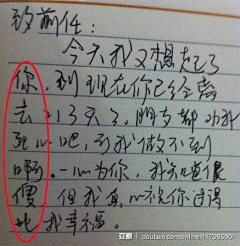 致前任：
今天我又想起了
你，到现在你已经离
去 213天了，朋友都劝我
死心吧，可我做不到
啊。一心为你，我知道很
傻，但我真心祝你过得
比我幸福。
豆瓣 douban.com